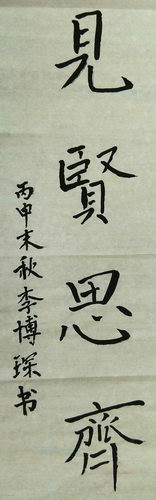 見賢思齊
丙申末秋李博琛书